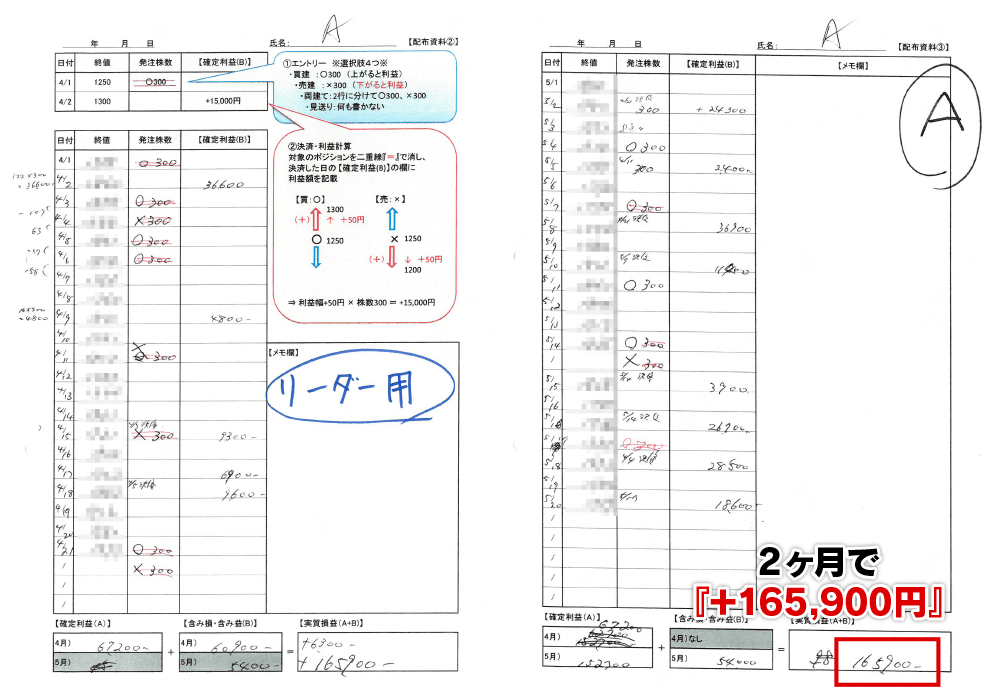 A
年 月 日
氏名:
【配布資料②】
日付 終値 発注株数 【確定利益(B)】
4/1 1250 〇300
4/2 1300 +15,000円
①エントリー ※選択肢4つ※
・買建 :〇300 (上がると利益)
・売建 :×300 (下がると利益)
・両建て:2行に分けて〇300、×300
・見送り:何も書かない
②決済・利益計算
対象のポジションを二重線『=』で消し、
決済した日の【確定利益(B)】の欄に
利益額を記載
【買:〇】 【売:×】
1300
(+) ↑ +50円
〇 1250
× 1250
(+) ↓ +50円
1200
⇒ 利益幅+50円 × 株数300 = +15,000円
日付 終値 発注株数 【確定利益(B)】
4/1 〇300
4/2 36600
4/3 〇300
4/4 ×300
4/5 〇300
4/6 〇300
4/7
4/8
4/9 4800-
4/10
4/11 〇300
4/12
4/13
4/14
4/15 ×300 9300-
4/16
4/17 6900-
4/18 9600-
4/19
4/20
4/21 〇300
×300
【メモ欄】
リーダー用
【確定利益(A)】 【含み損・含み益(B)】 【実質損益(A+B)】
4月) 67200- + 4月) 60900- = +6300-
5月) 5月) 54000- +165900-
A
年 月 日
氏名:
【配布資料③】
日付 終値 発注株数 【確定利益(B)】 【メモ欄】
A
5/1
5/2 300 +24300
5/3
5/4 〇300
5/5 300 2400-
5/6
5/7 〇300
5/8 36300
5/9
5/10
5/11 〇300
5/12
5/13
5/14 〇300
×300
5/15 3900-
5/16
26700-
5/18 28500
5/19
5/20 18600-
2ヶ月で
『+165,900円』
【確定利益(A)】 【含み損・含み益(B)】 【実質損益(A+B)】
67200
4月) + 4月)なし =
5月) 152700 5月) 54000 165900-